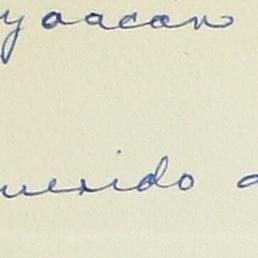 yoacan
uerido a